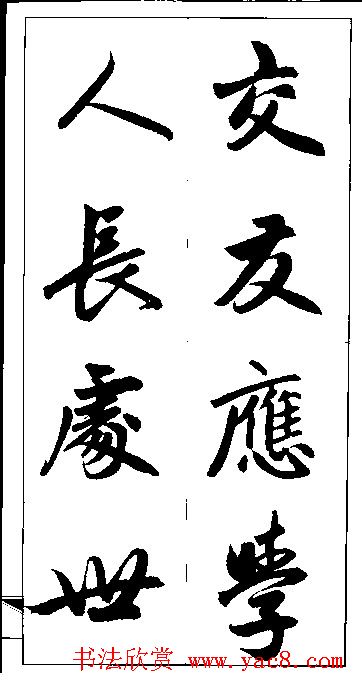 交友應學
人長處世
书法欣赏 www.yac8.com